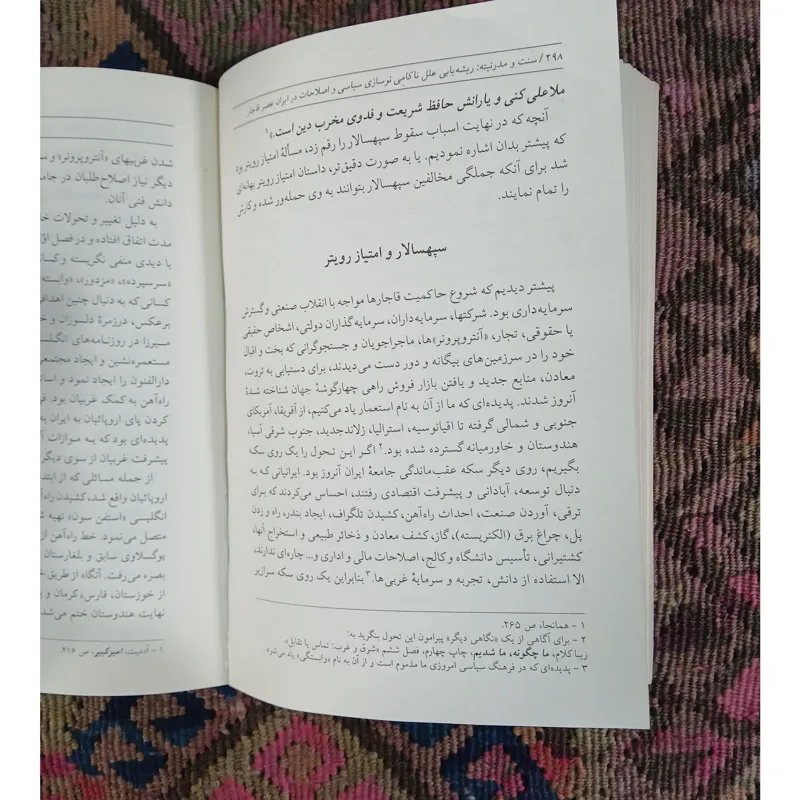 ۲۹۸/ سنت و مدرنیته: ریشه‌یابی علل ناکامی نوسازی سیاسی و اصلاحات در ایران عصر قاجار
ملاعلی کنی و یارانش حافظ شریعت و فدوی مخرب دین است.»۱
آنچه که در نهایت اسباب سقوط سپهسالار را رقم زد، مسألهٔ امتیاز رویتر بود
که پیشتر بدان اشاره نمودیم. یا به صورت دقیق‌تر، داستان امتیاز رویتر بهانه‌ای
شد برای آنکه جملگی مخالفین سپهسالار بتوانند به وی حمله‌ور شده و کارش
را تمام نمایند.
سپهسالار و امتیاز رویتر
پیشتر دیدیم که شروع حاکمیت قاجارها مواجه با انقلاب صنعتی و گسترش
سرمایه‌داری بود. شرکتها، سرمایه‌داران، سرمایه‌گذاران دولتی، اشخاص حقیقی
یا حقوقی، تجار، «آنتروپرونر»ها، ماجراجویان و جستجوگرانی که بخت و اقبال
خود را در سرزمین‌های بیگانه و دور دست می‌دیدند، برای دستیابی به ثروت،
معادن، منابع جدید و یافتن بازار فروش راهی چهارگوشهٔ جهان شناخته شدهٔ
آنروز شدند. پدیده‌ای که ما از آن به نام استعمار یاد می‌کنیم، از آفریقا، آمریکای
جنوبی و شمالی گرفته تا اقیانوسیه، استرالیا، زلاندجدید، جنوب شرقی آسیا،
هندوستان و خاورمیانه گسترده شده بود.۲ اگر این تحول را یک روی سکه
بگیریم، روی دیگر سکه عقب‌ماندگی جامعهٔ ایران آنروز بود. ایرانیانی که به
دنبال توسعه، آبادانی و پیشرفت اقتصادی رفتند، احساس می‌کردند که برای
ترقی، آوردن صنعت، احداث راه‌آهن، کشیدن تلگراف، ایجاد بندر، راه و زدن
پل، چراغ برق (الکتریسته)، گاز، کشف معادن و ذخائر طبیعی و استخراج آنها،
کشتیرانی، تأسیس دانشگاه و کالج، اصلاحات مالی و اداری و... چاره‌ای ندارند،
الا استفاده از دانش، تجربه و سرمایهٔ غربی‌ها.۳ بنابراین یک روی سکه سرازیر
۱ - همانجا، ص ۲۶۵.
۲ - برای آگاهی از یک «نگاهی دیگر» پیرامون این تحول بنگرید به:
زیبا کلام، ما چگونه، ما شدیم، چاپ چهارم، فصل ششم «شرق و غرب: تماس یا تقابل».
۳ - پدیده‌ای که در فرهنگ سیاسی امروزی ما مذموم است و از آن به نام «وابستگی» یاد می‌شود.
شدن غربیهای «آنتروپرونر» و
دیگر نیاز اصلاح‌طلبان در
دانش فنی آنان.
به دلیل تغییر و تحولات
مدت اتفاق افتاده و در فصل
با دیدی منفی نگریسته و
«سرسپرده»، «مزدور»، «وابسته
کسانی که به دنبال چنین
برعکس، درزمرهٔ دلسوزان و
میرزا در روزنامه‌های
مستعمره‌نشین و ایجاد
دارالفنون را ایجاد نمود و
راه‌آهن به کمک غربیان بود.
کردن پای اروپائیان به ایران
پدیده‌ای بود که به موازات
پیشرفت غربیان از سوی دیگر
از جمله مسائلی که از
اروپائیان واقع شد، کشیدن
انگلیسی «استفن سون» تهیه
متصل می‌نمود. خط راه‌آهن از
یوگسلاوی سابق و بلغارستان
بصره می‌رفت. آنگاه از طریق
از خوزستان، فارس، کرمان و
نهایت هندوستان ختم
۱ - آدمیت، امیرکبیر، ص ۲۱۶.